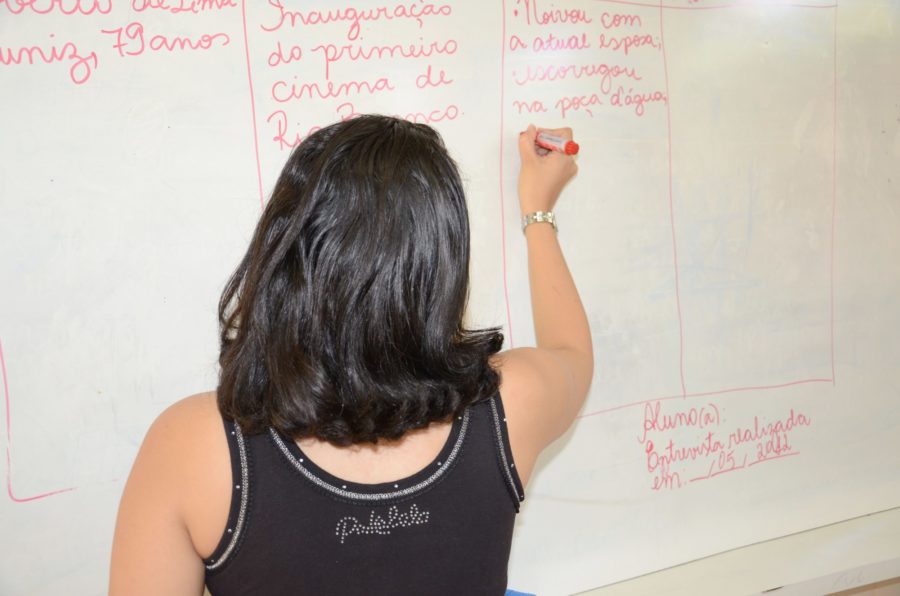 de Lima
uniz, 79 anos
Inauguração
do primeiro
cinema de
Rio Branco.
• Noivou com
a atual esposa;
escorregou
na poça d'água;
Aluno(a):
Entrevista realizada
em: __/05/2012